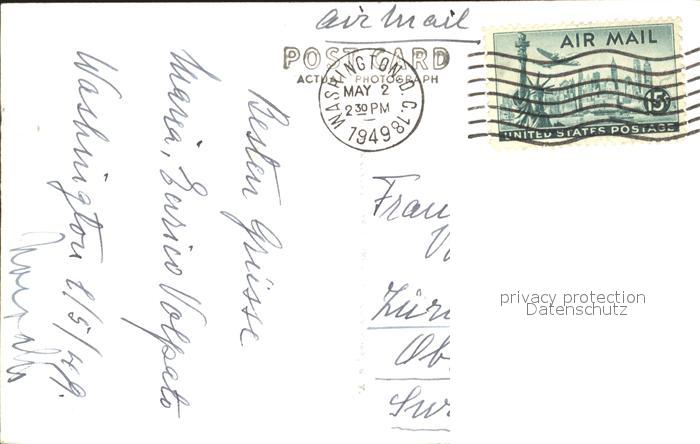 air mail
POST CARD
ACTUAL PHOTOGRAPH
WASHINGTON, D.C. 18
MAY 2
2 30 PM
1949
AIR MAIL
15¢
UNITED STATES POSTAGE
Besten Grüsse
Maria, Enrico Volpato
Washington 2/5/49.
Frau
V
Zür
Ob
Sw
privacy protection
Datenschutz